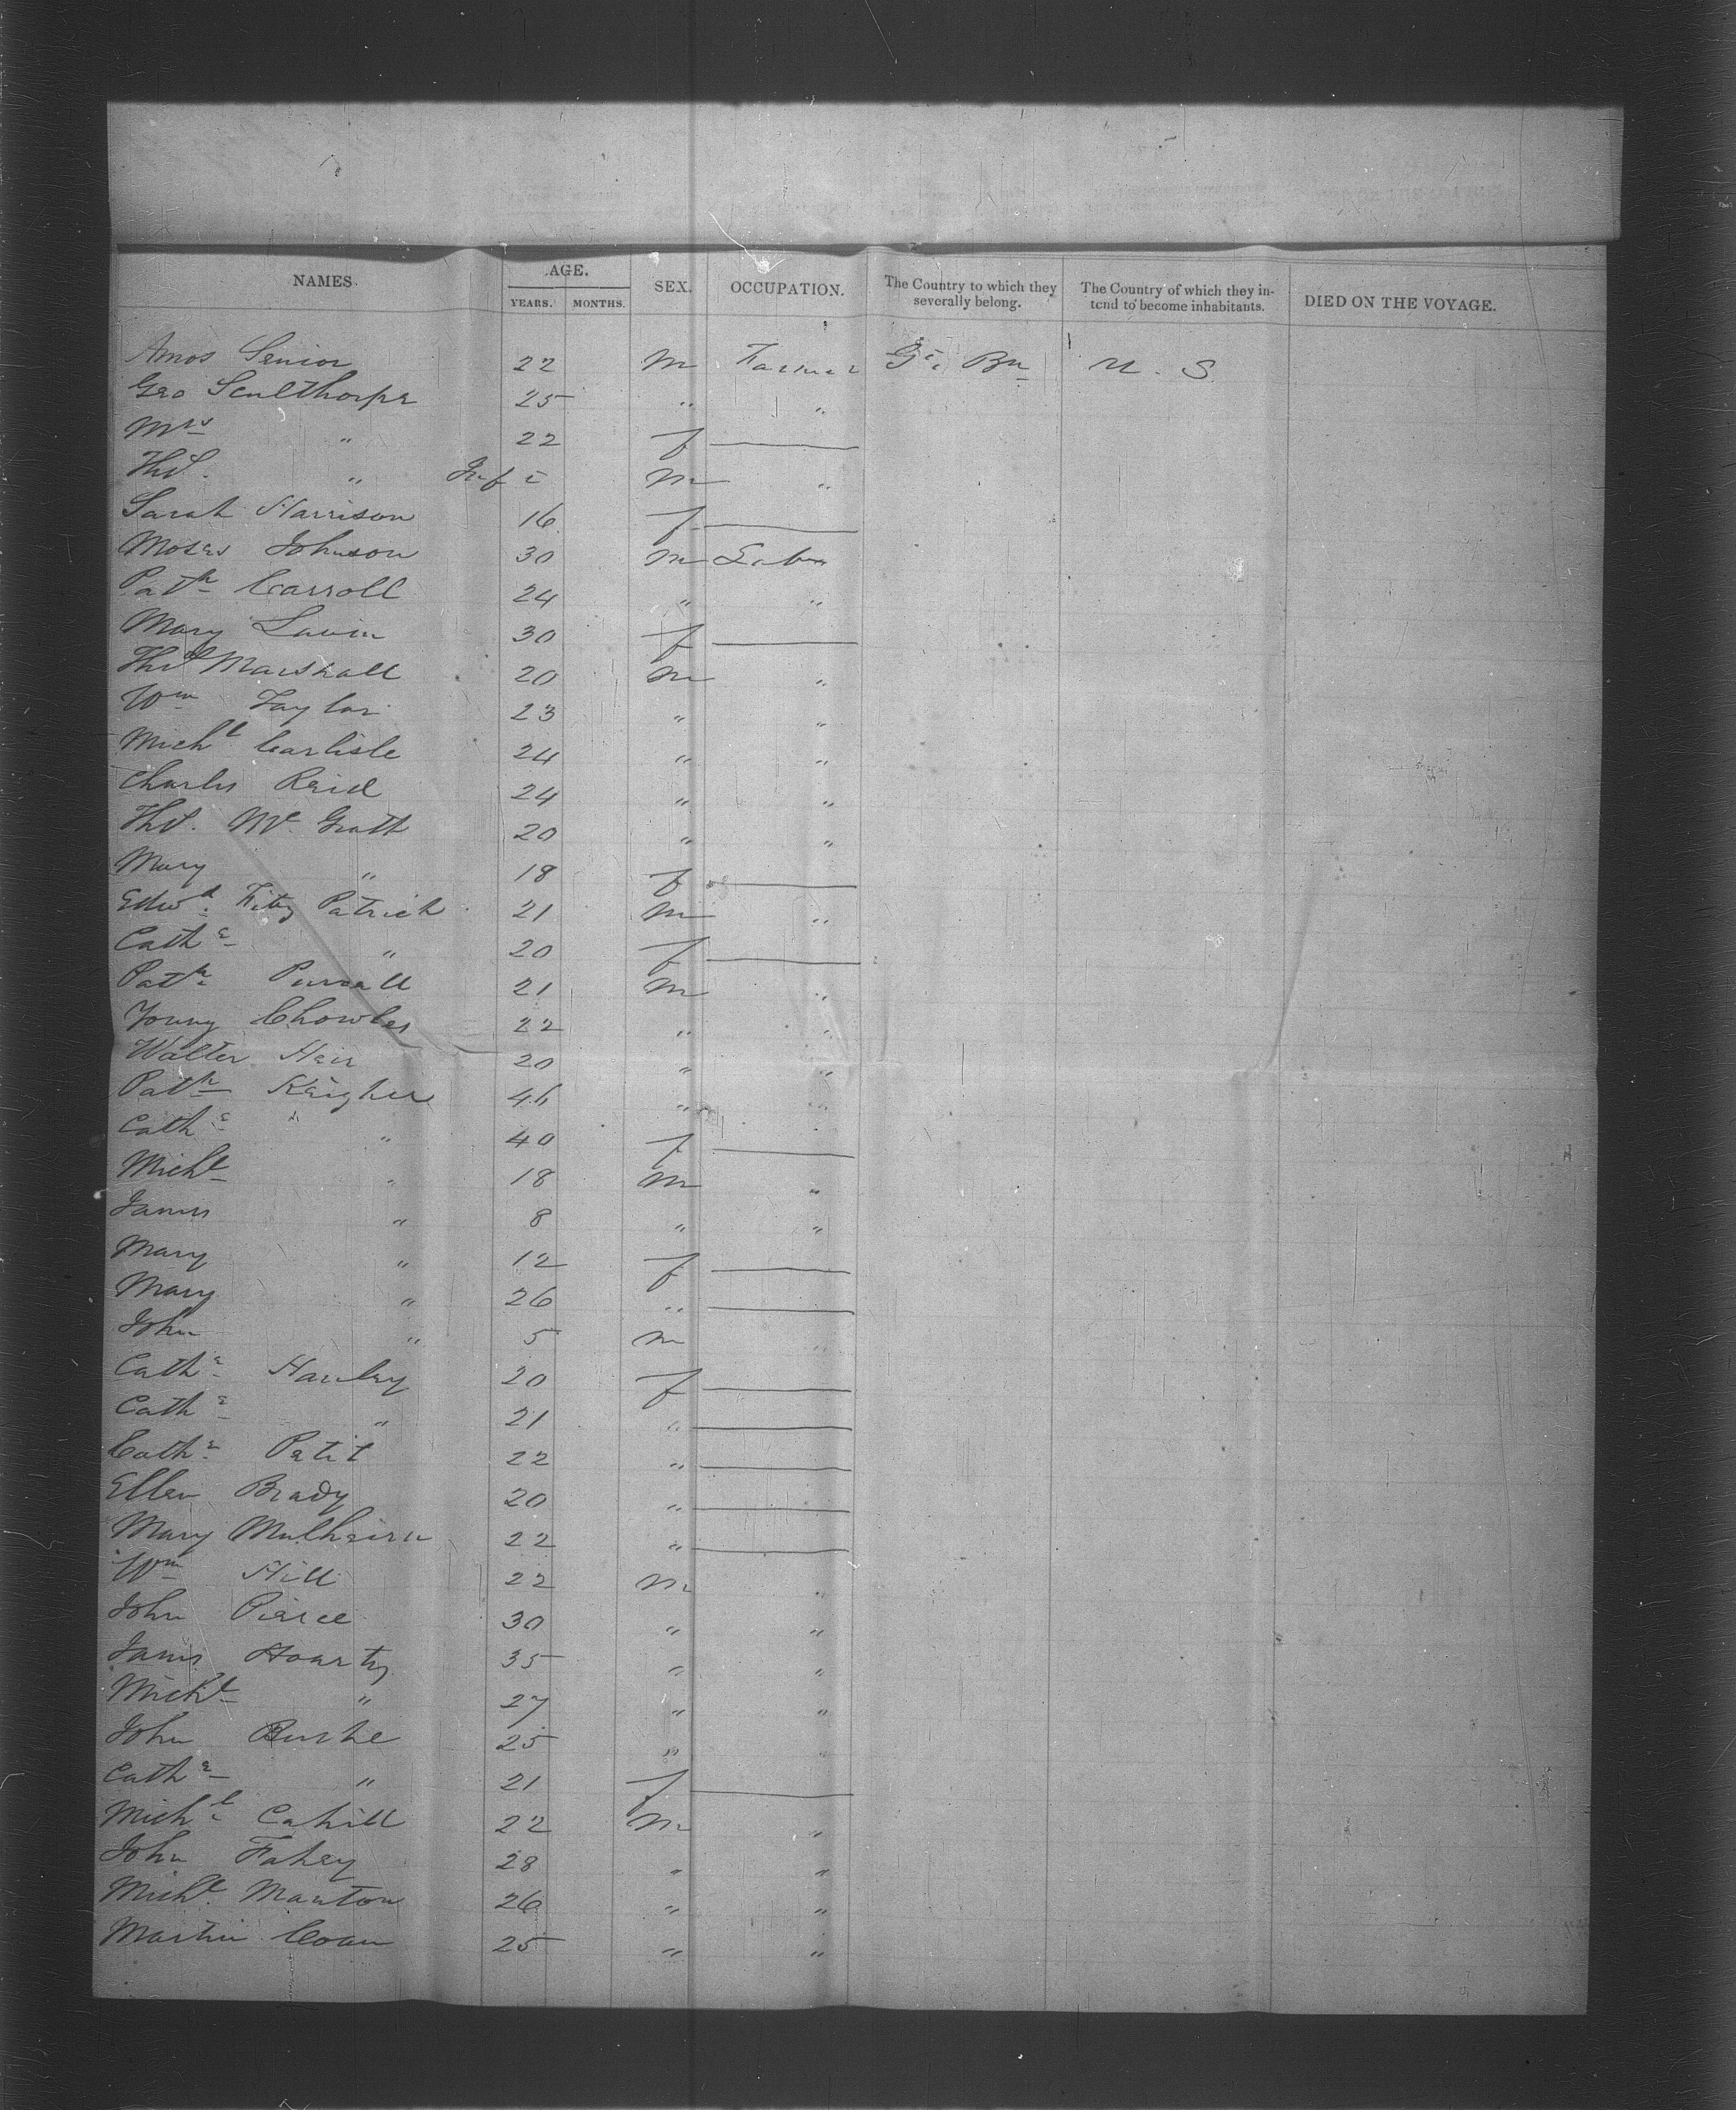 NAMES. AGE. SEX. OCCUPATION. The Country to which they severally belong. The Country of which they intend to become inhabitants. DIED ON THE VOYAGE.
YEARS. MONTHS.
Amos Senior 22 m Farmer Gt. Bn U. S.
Geo Sculthorpe 25 " "
Mrs " 22 f —
Thos. " Inft m "
Sarah Harrison 16 f —
Moses Johnson 30 m Labr
Patk Carroll 24 " "
Mary Lavin 30 f —
Thos Marshall 20 m "
Wm Taylor 23 " "
Michl Carlisle 24 " "
Charles Reid 24 " "
Thos. Mc Grath 20 " "
Mary " 18 f —
Edwd. Fitz Patrick 21 m "
Cathe " 20 f —
Patk Purcell 21 m "
Young Chowles 22 " "
Walter Heir 20 " "
Patk Keigher 46 " "
Cathe " 40 f —
Michl " 18 m "
James " 8 " "
Mary " 12 f —
Mary " 26 " —
John " 5 m "
Cathe Hanley 20 f —
Cathe " 21 " —
Cathe Petit 22 " —
Ellen Brady 20 " —
Mary Mulheirn 22 " —
Wm Hill 22 m "
John Pierce 30 " "
James Hoarty 35 " "
Michl " 27 " "
John Burke 25 " "
Cathe " 21 f —
Michl Cahill 22 m "
John Fahey 28 " "
Michl Manton 26 " "
Martin Coan 25 " "